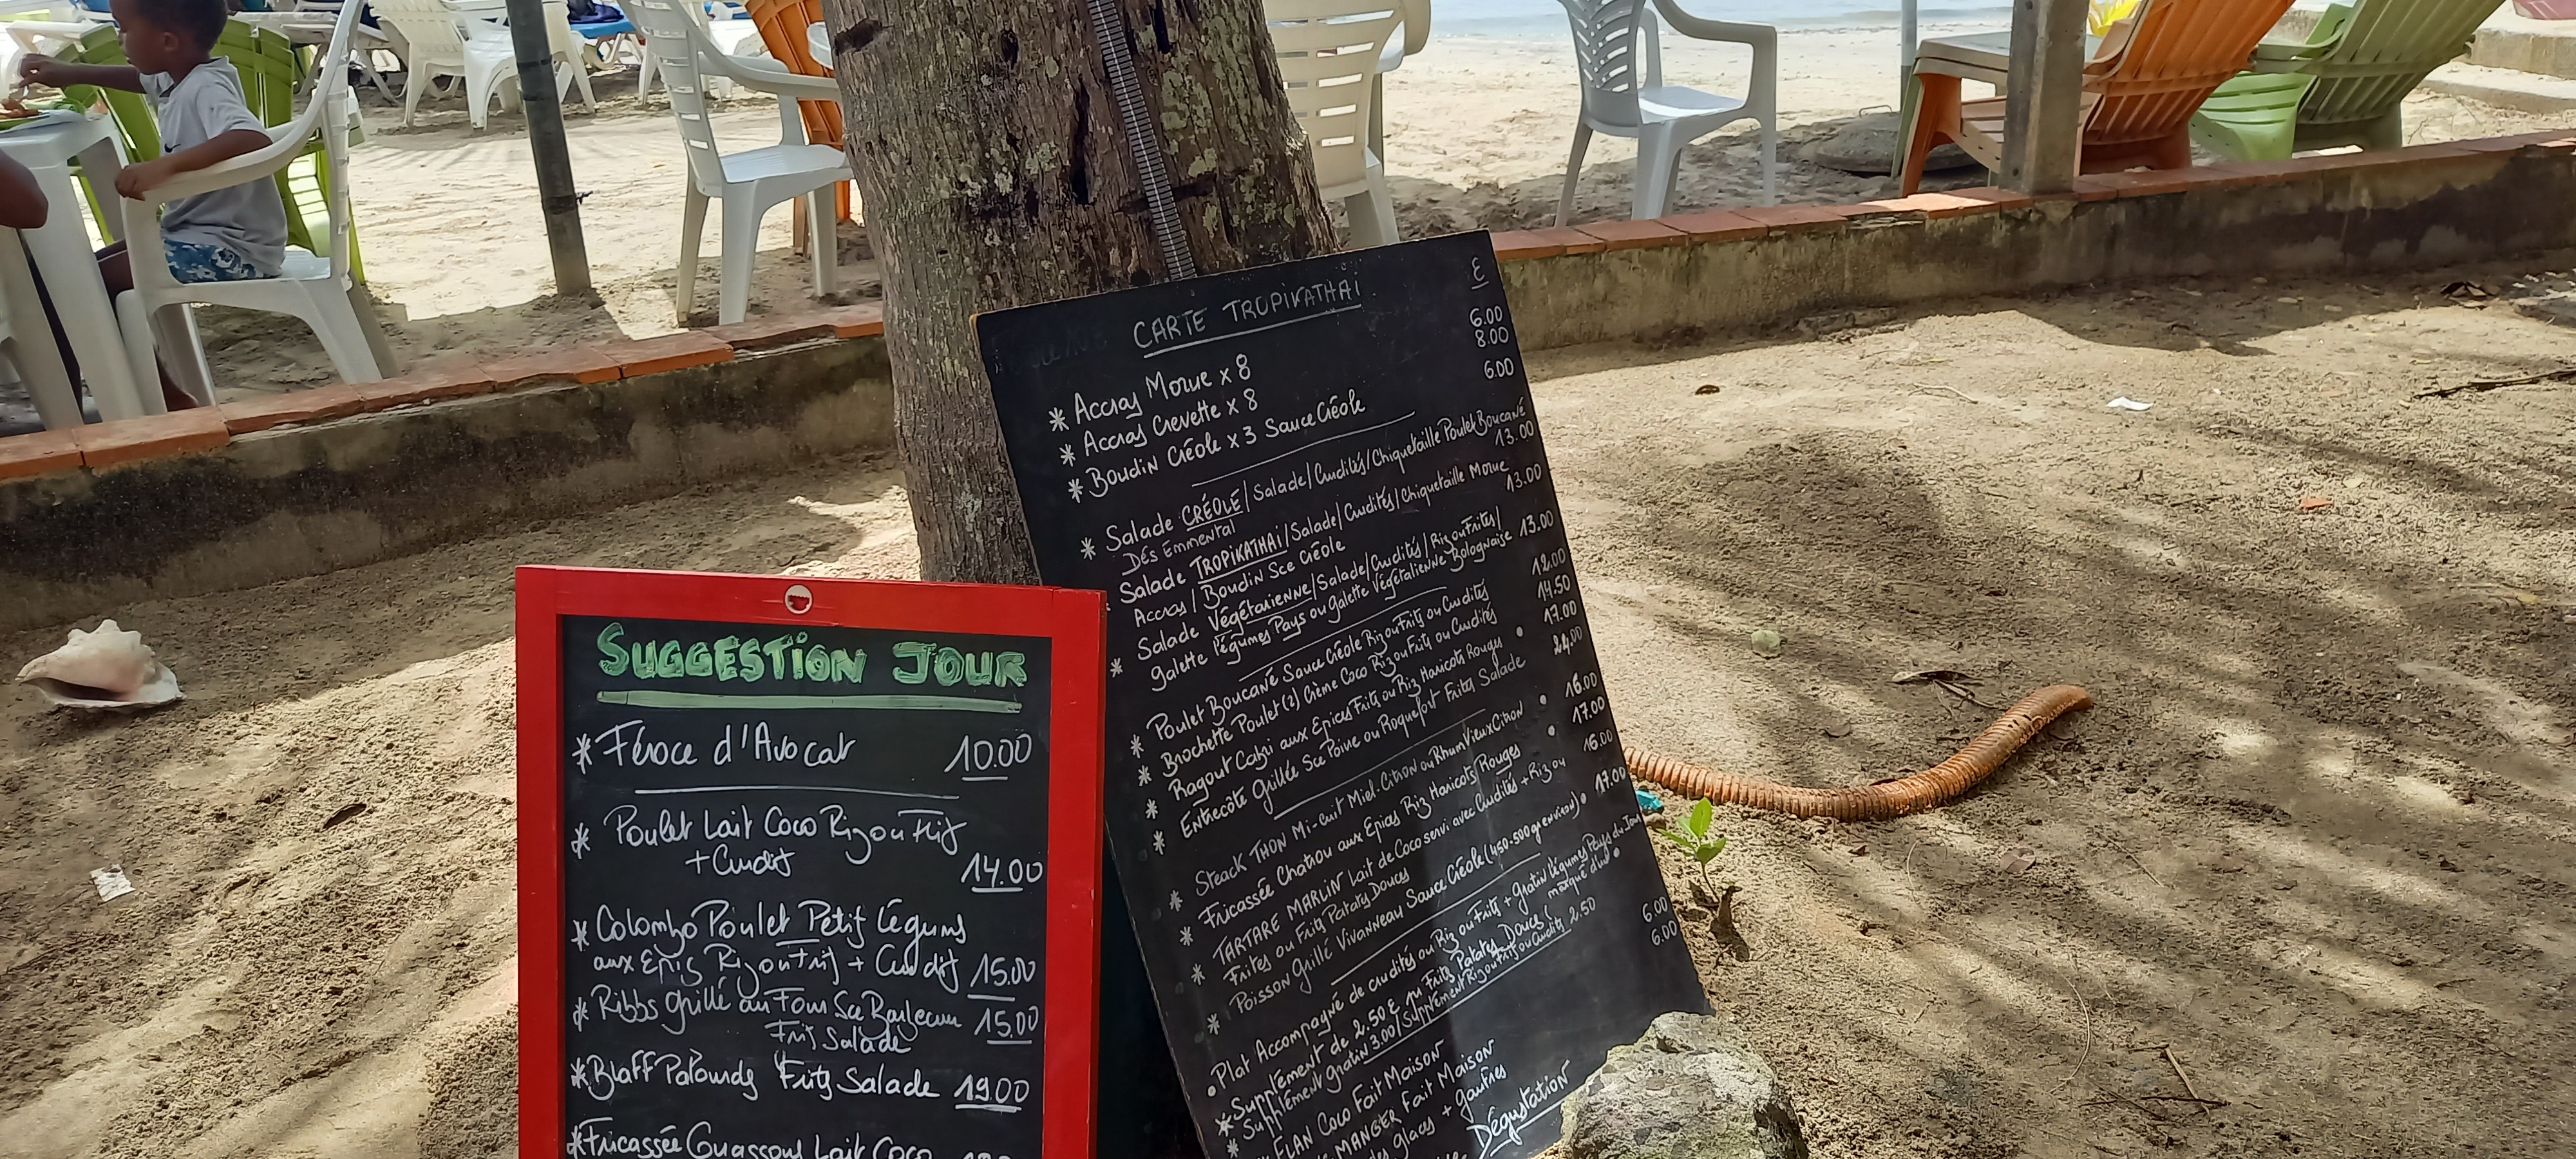 SUGGESTION JOUR
* Féroce d'Avocat 10.00
* Poulet Lait Coco Riz ou Frit
+ Crudit 14.00
* Colombo Poulet Petit Légums
aux Epis Riz ou Frit + Crudit 15.00
* Ribbs grillé au Four Sce Barbecue 15.00
Frit Salade
* Blaff Palourds Frits Salade 19.00
* Fricassée Ouassous Lait Coco
CARTE TROPIKATHAI €
* Accras Morue x 8 6.00
* Accras Crevette x 8 8.00
* Boudin Créole x 3 Sauce Créole 6.00
* Salade CRÉOLE / Salade / Crudités / Chiquetaille Poulet Boucané
Dés Emmental 13.00
* Salade TROPIKATHAI / Salade / Crudités / Chiquetaille Morue
Accras / Boudin Sce Créole 13.00
* Salade Végétarienne / Salade / Crudités / Riz ou Frites /
galette légumes Pays ou galette Végétalienne Bolognaise 13.00
* Poulet Boucané Sauce Créole Riz ou Frits ou Crudités 12.00
* Brochette Poulet (2) Crème Coco Riz ou Frits ou Crudités 14.50
* Ragout Cabri aux Epices Frits ou Riz Haricots Rouges 17.00
* Entrecôte grillée Sce Poivre ou Roquefort Frites Salade 24.00
* Steack THON Mi-cuit Miel-Citron ou Rhum Vieux Citron 16.00
* Fricassée Chatrou aux Epices Riz Haricots Rouges 17.00
* TARTARE MARLIN Lait de Coco servi avec Crudités + Riz ou
Frites ou Frits Patates Douces 16.00
* Poisson grillé Vivanneau Sauce Créole (450-500gr environ) 17.00
• Plat Accompagné de crudités ou Riz ou Frits + gratin légumes Pays du Jour
* Supplément de 2.50 € Frits Patates Douces (marqué d'un •
Supplément gratin 3.00 / Supplément Riz ou Frits ou Crudités 2.50
* FLAN Coco Fait Maison 6.00
MANGER Fait Maison 6.00
glaces + gaufres
Dégustation